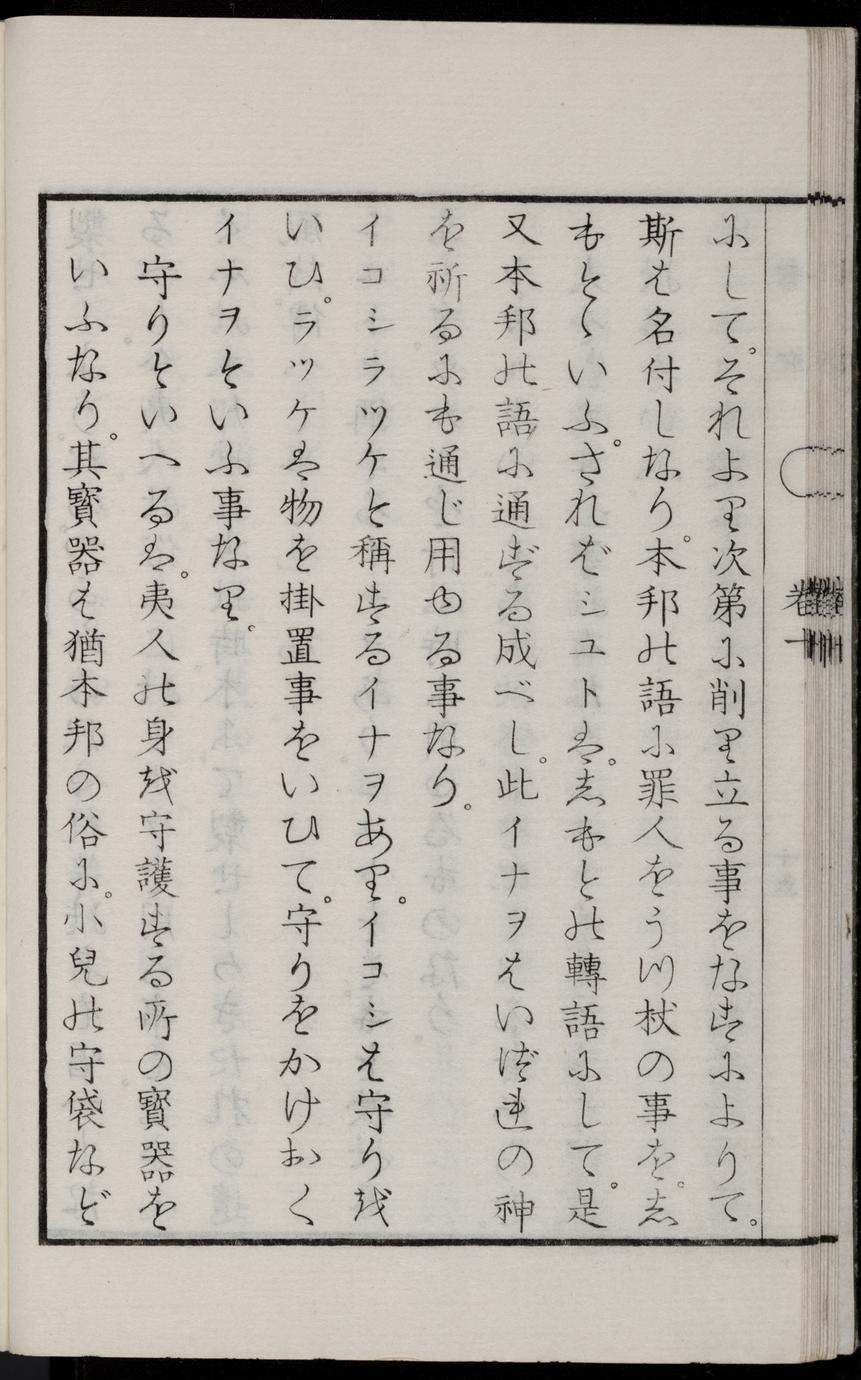 にして。それより次第に削り立る事をなすによりて。
斯は名付しなり。本邦の語に罪人をうつ杖の事を。し
もとゝいふ。さればシユトは。しもとの轉語にして。是
又本邦の語に通ずる成べし。此イナヲはいづ連の神
を祈るにも通じ用ゆる事なり。
イコシラツケと稱するイナヲあり。イコシは守りを
いひ。ラツケは物を掛置事をいひて。守りをかけおく
イナヲといふ事なり。
守りといへるは。夷人の身を守護する所の寳器を
いふなり。其寳器は猶本邦の俗に。小兒の守袋など
卷一